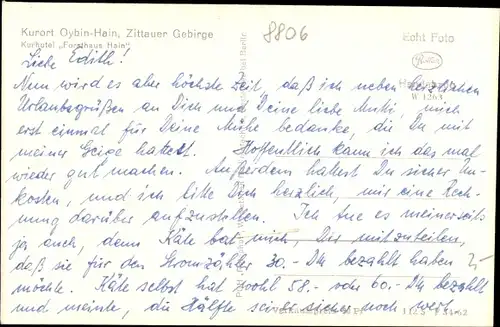 Kurort Oybin-Hain, Zittauer Gebirge
Kurhotel „Forsthaus Hain"
8806
Echt Foto
W 1263
Liebe Edith!
Nun wird es aber höchste Zeit, daß ich neben herzlichen
Urlaubsgrüßen an Dich und Deine liebe Mutti, mich
erst einmal für Deine Mühe bedanke, die Du mit
meiner Geige hattest. Hoffentlich kann ich das mal
wieder gut machen. Außerdem hattest Du sicher Un-
kosten, und ich bitte Dich herzlich, mir eine Rech-
nung darüber aufzustellen. Ich tue es meinerseits
ja auch, denn Käte bat mich, Dir mitzuteilen,
daß sie für den Stromzähler 30.- DM bezahlt haben
möchte. Käte selbst hat 58.- oder 60.- DM bezahlt
und meinte, die Hälfte sei er sicher noch wert.